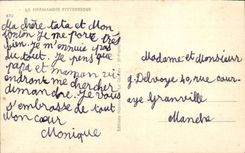 LA NORMANDIE PITTORESQUE
Ma chère tata et Mon
tonton Je me porte très
bien. Je m'ennuie pas
du tout. Je pens que
papa et maman vi
endrons me chercher
dimanche. Je vous
s'embrasse de tout
Mon cœur
Monique
Madame et Monsieur
J Delvoye 40, rue cour-
aye Granville
Manche